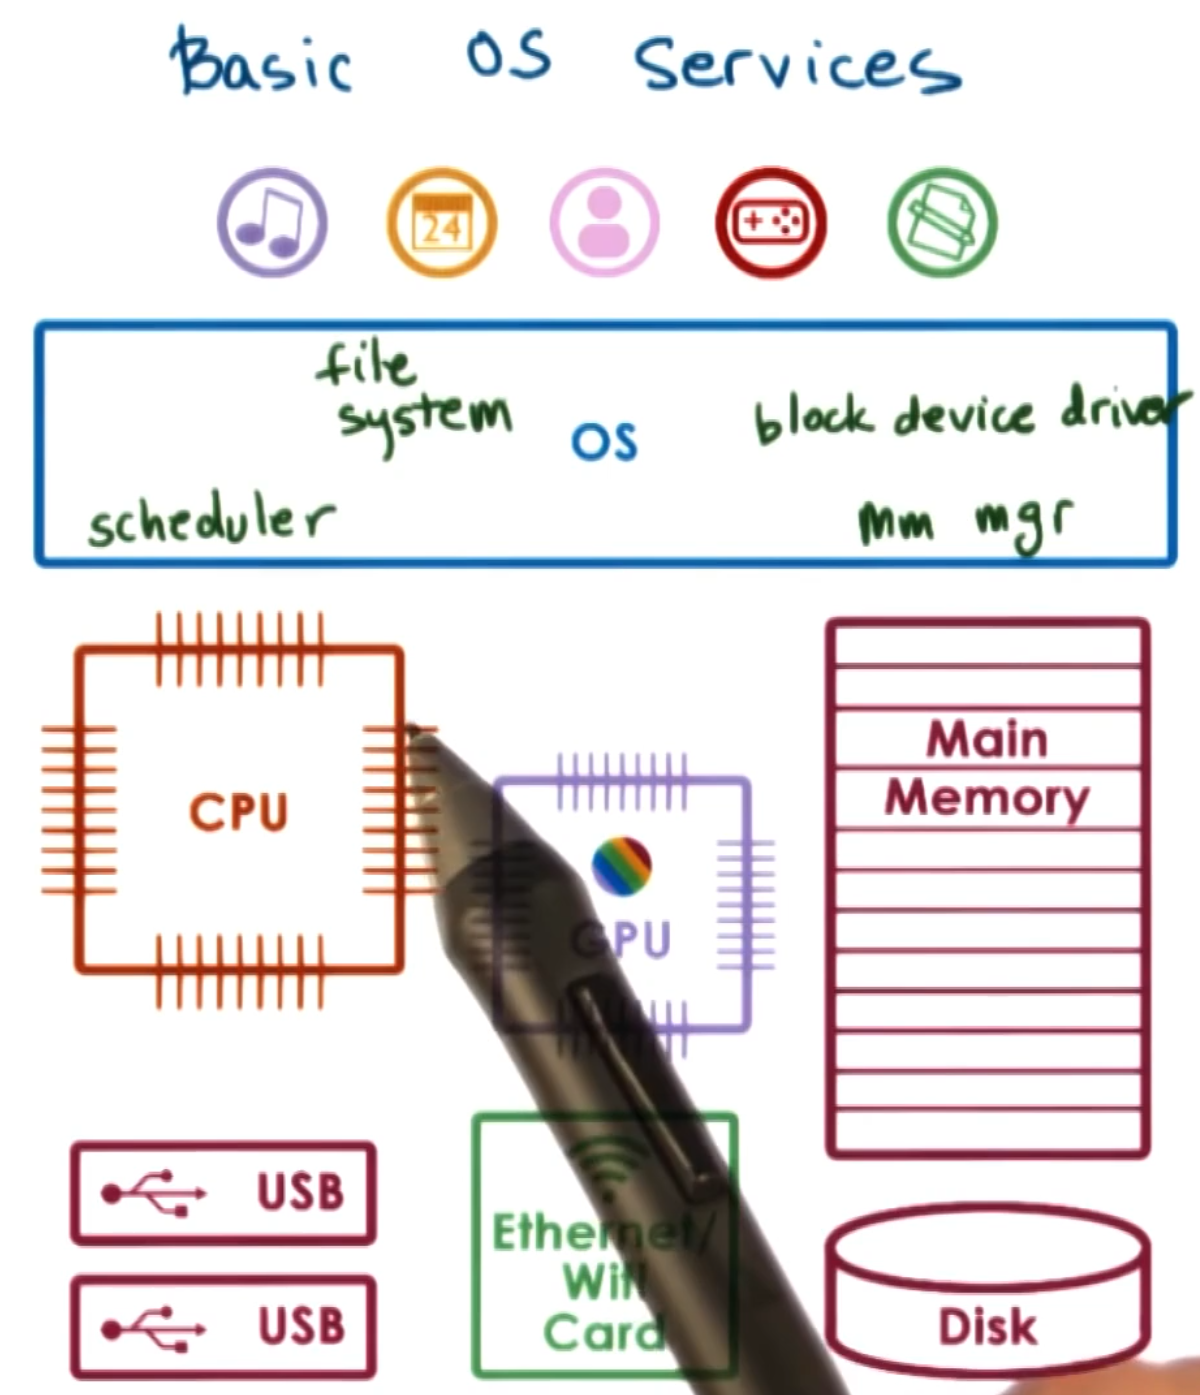 Basic OS Services
24
file
system
OS
block device driver
scheduler
mm mgr
CPU
Main
Memory
GPU
USB
Ethernet/
Wifi
Card
USB
Disk